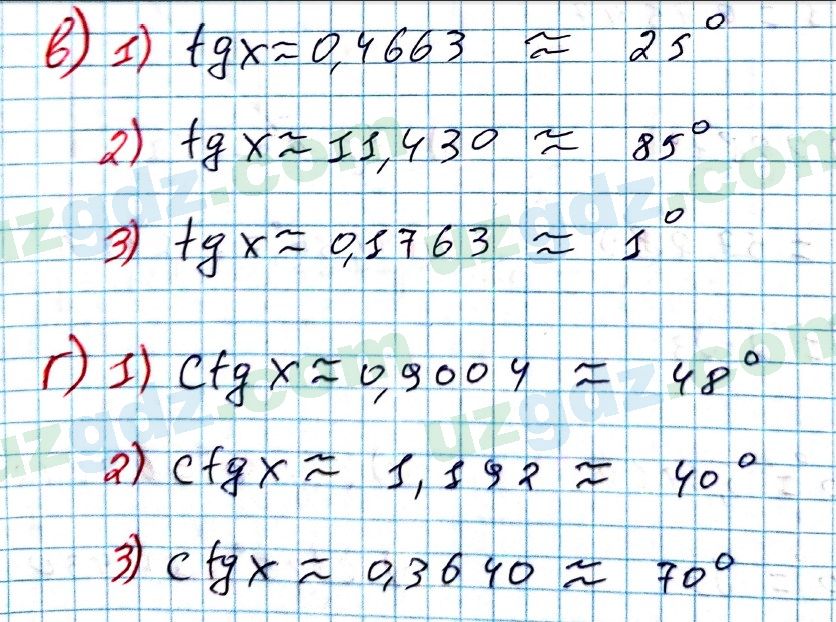 в) 1) tgx ≈ 0,4663 ≈ 25°
2) tgx ≈ 11,430 ≈ 85°
3) tgx ≈ 0,1763 ≈ 1°
г) 1) ctgx ≈ 0,9004 ≈ 48°
2) ctgx ≈ 1,192 ≈ 40°
3) ctgx ≈ 0,3640 ≈ 70°
uzgdz.com
uzgdz.com
uzgdz.com
uzgdz.com